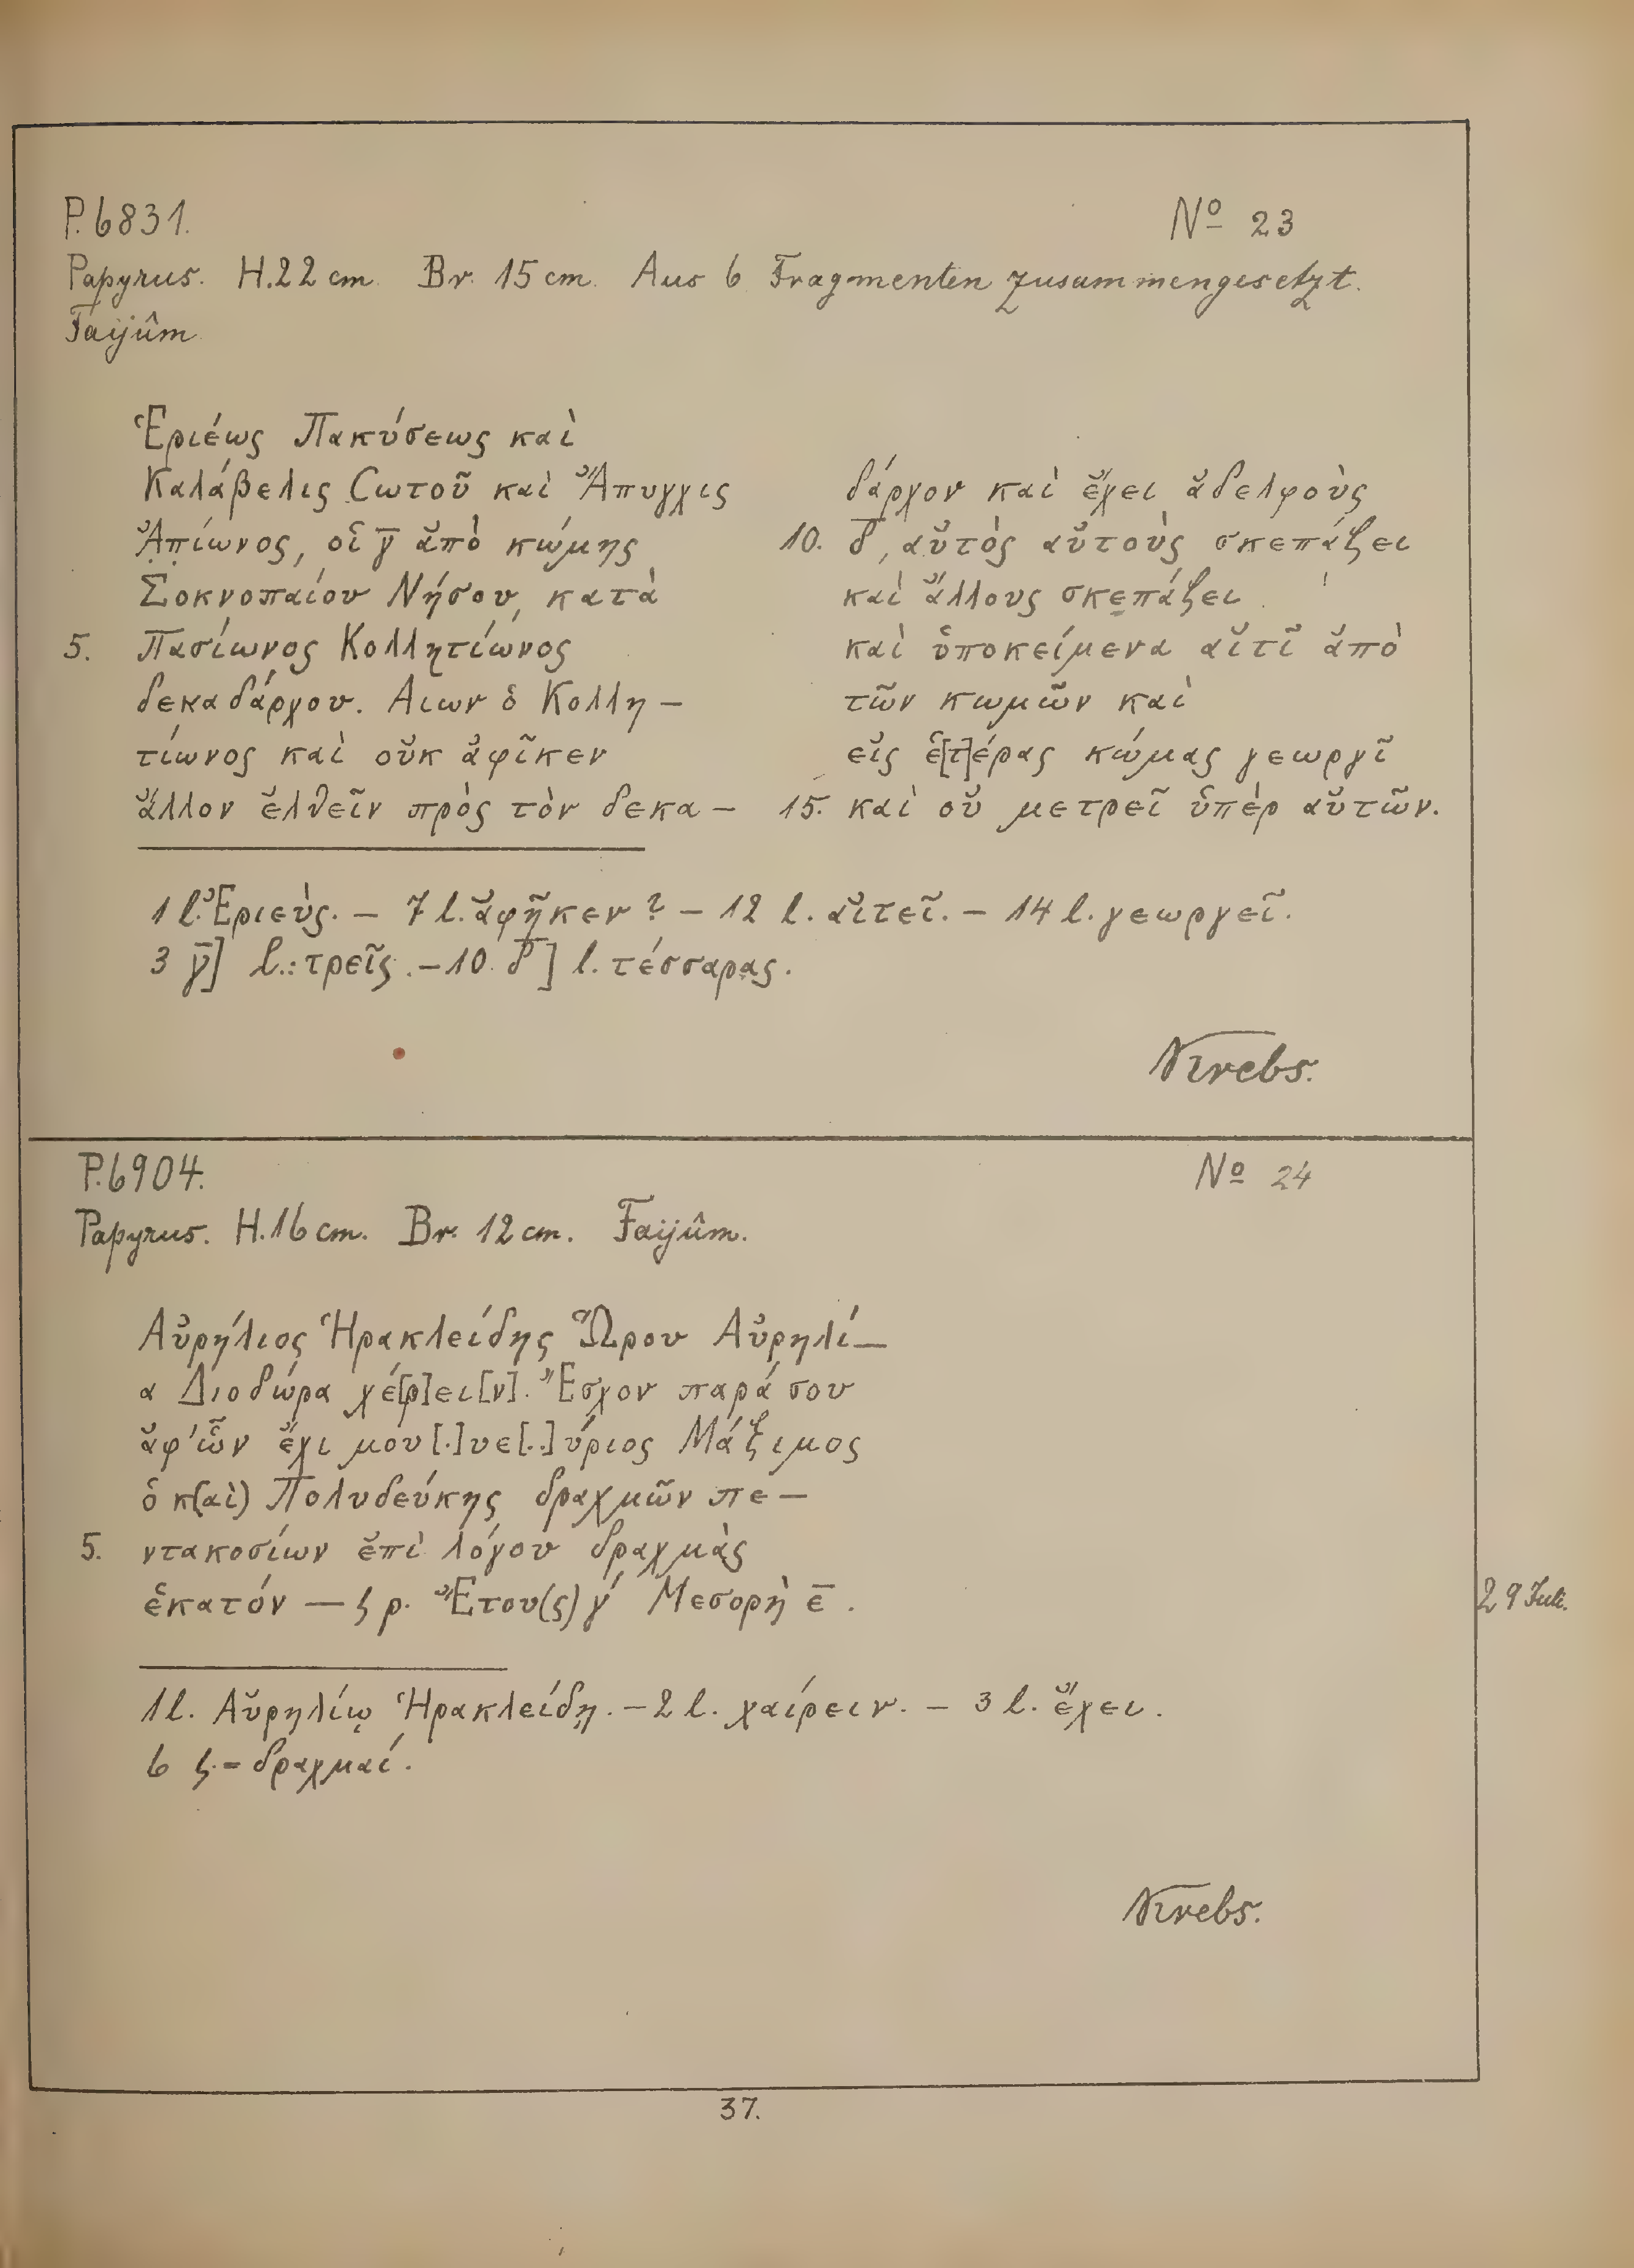 P. 6831.
Nº 23
Papyrus. H. 22 cm. Br. 15 cm. Aus 6 Fragmenten zusammengesetzt.
Faijûm.
Ἑριέως Πακύσεως καὶ
Καλάβελις Σωτοῦ καὶ Ἄπυγχις
Ἀ̣π̣ίωνος, οἱ γ̅ ἀπὸ κώμης
Σοκνοπαίου Νήσου, κατὰ
5. Πασίωνος Κολλητίωνος
δεκαδάρχου. Αιων ὁ Κολλη–
τίωνος καὶ οὐκ ἀφῖκεν
ἄλλον ἐλθεῖν πρὸς τὸν δεκα–
δάρχον καὶ ἔχει ἀδελφοὺς
10. δ̅, αὐτὸς αὐτοὺς σκεπάζει
καὶ ἄλλους σκεπάζει
καὶ ὑποκείμενα αἰτῖ ἀπὸ
τῶν κωμῶν καὶ
εἰς ἑ[τ]έρας κώμας γεωργῖ
15. καὶ οὐ μετρεῖ ὑπὲρ αὐτῶν.
1 l. Ἐριεὺς. – 7 l. ἀφῆκεν? – 12 l. αἰτεῖ. – 14 l. γεωργεῖ.
3 γ̅] l.: τρεῖς. – 10. δ̅] l. τέσσαρας.
Krebs.
P. 6904.
Nº 24
Papyrus. H. 16 cm. Br. 12 cm. Faijûm.
Αὐρήλιος Ἡρακλείδης Ὥρου Αὐρηλί–
α Διοδώρα χέ[ρ]ει[ν]. Ἔσχον παρά σου
ἀφ' ὧν ἔχι μου [.]υε[..]ύριος Μάξιμος
ὁ κ(αὶ) Πολυδεύκης δραχμῶν πε–
5. ντακοσίων ἐπὶ λόγου δραχμὰς
ἑκατόν — ϛ ρ. Ἔτου(ς) γ´ Μεσορὴ ε̅.
29 Juli.
1 l. Αὐρηλίῳ Ἡρακλείδῃ. – 2 l. χαίρειν. – 3 l. ἔχει.
6 ϛ = δραχμαί.
Krebs.
37.